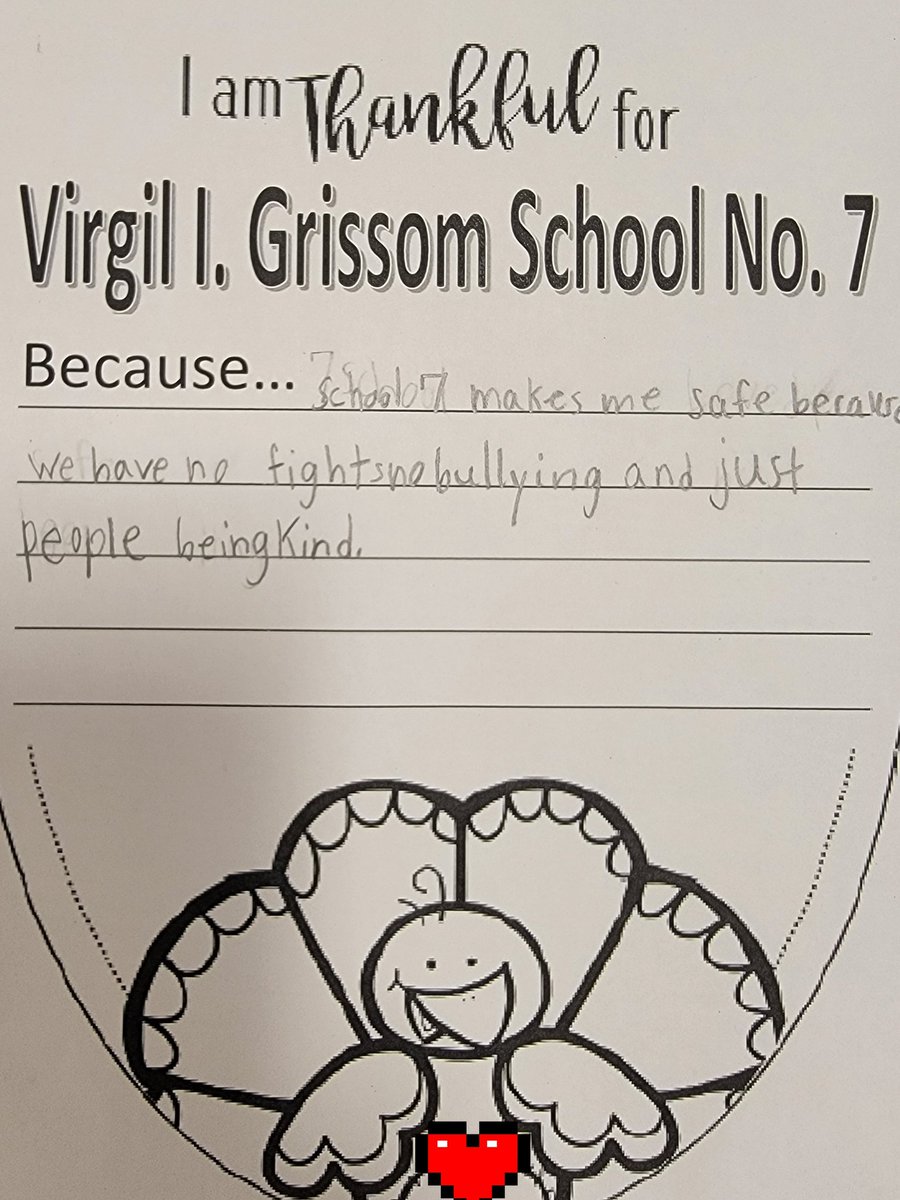 I am Thankful for
Virgil I. Grissom School No. 7
Because... school 7 makes me safe because
we have no fights no bullying and just
people being Kind.